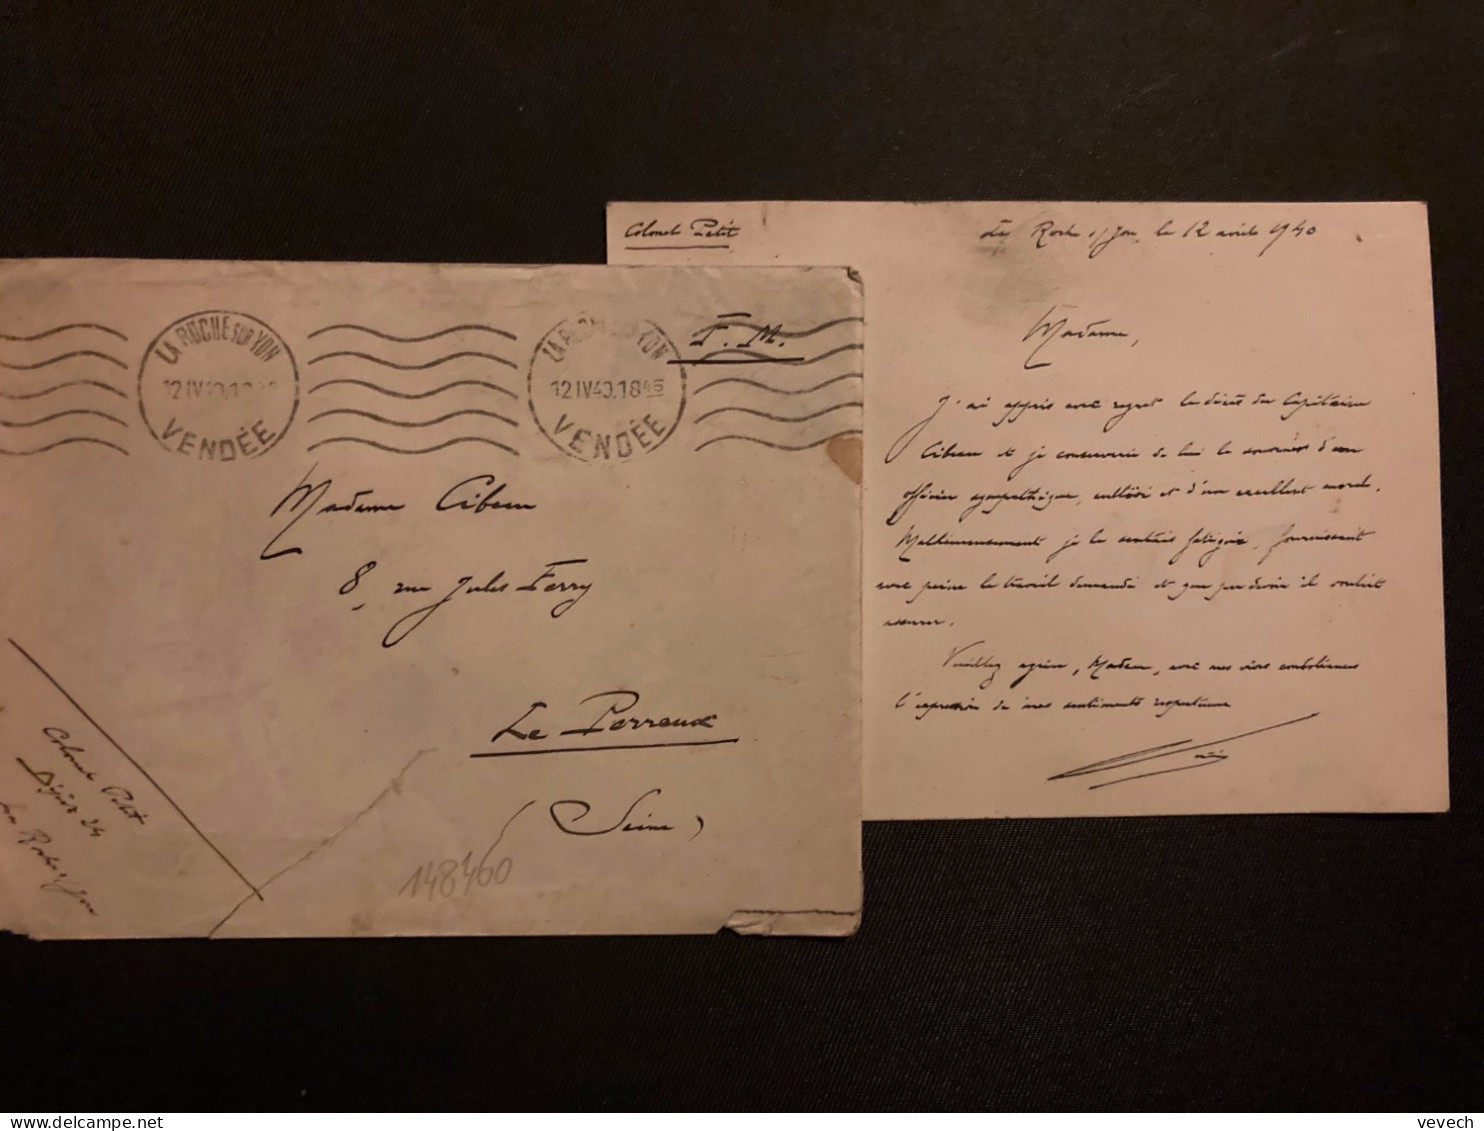 LA ROCHE SUR YON
12 IV 40
VENDÉE
LA ROCHE SUR YON
12 IV 40.1845
VENDÉE
F. M.
Madame
8, rue Jules Ferry
Le Perreux
(Seine)
148460
Colonel Petit
24
La Roche s/Yon
Colonel Petit
La Roche s/Yon, le 12 avril 1940
Madame,
J'ai appris avec regret le décès du Capitaine
et je conserverai de lui le souvenir d'un
officier sympathique, cultivé et d'un excellent moral.
Malheureusement je le sentais fatigué, fournissant
avec peine le travail demandé et que par devoir il voulait
assurer.
Veuillez agréer, Madame, avec mes vives condoléances
l'expression de mes sentiments respectueux
vevech